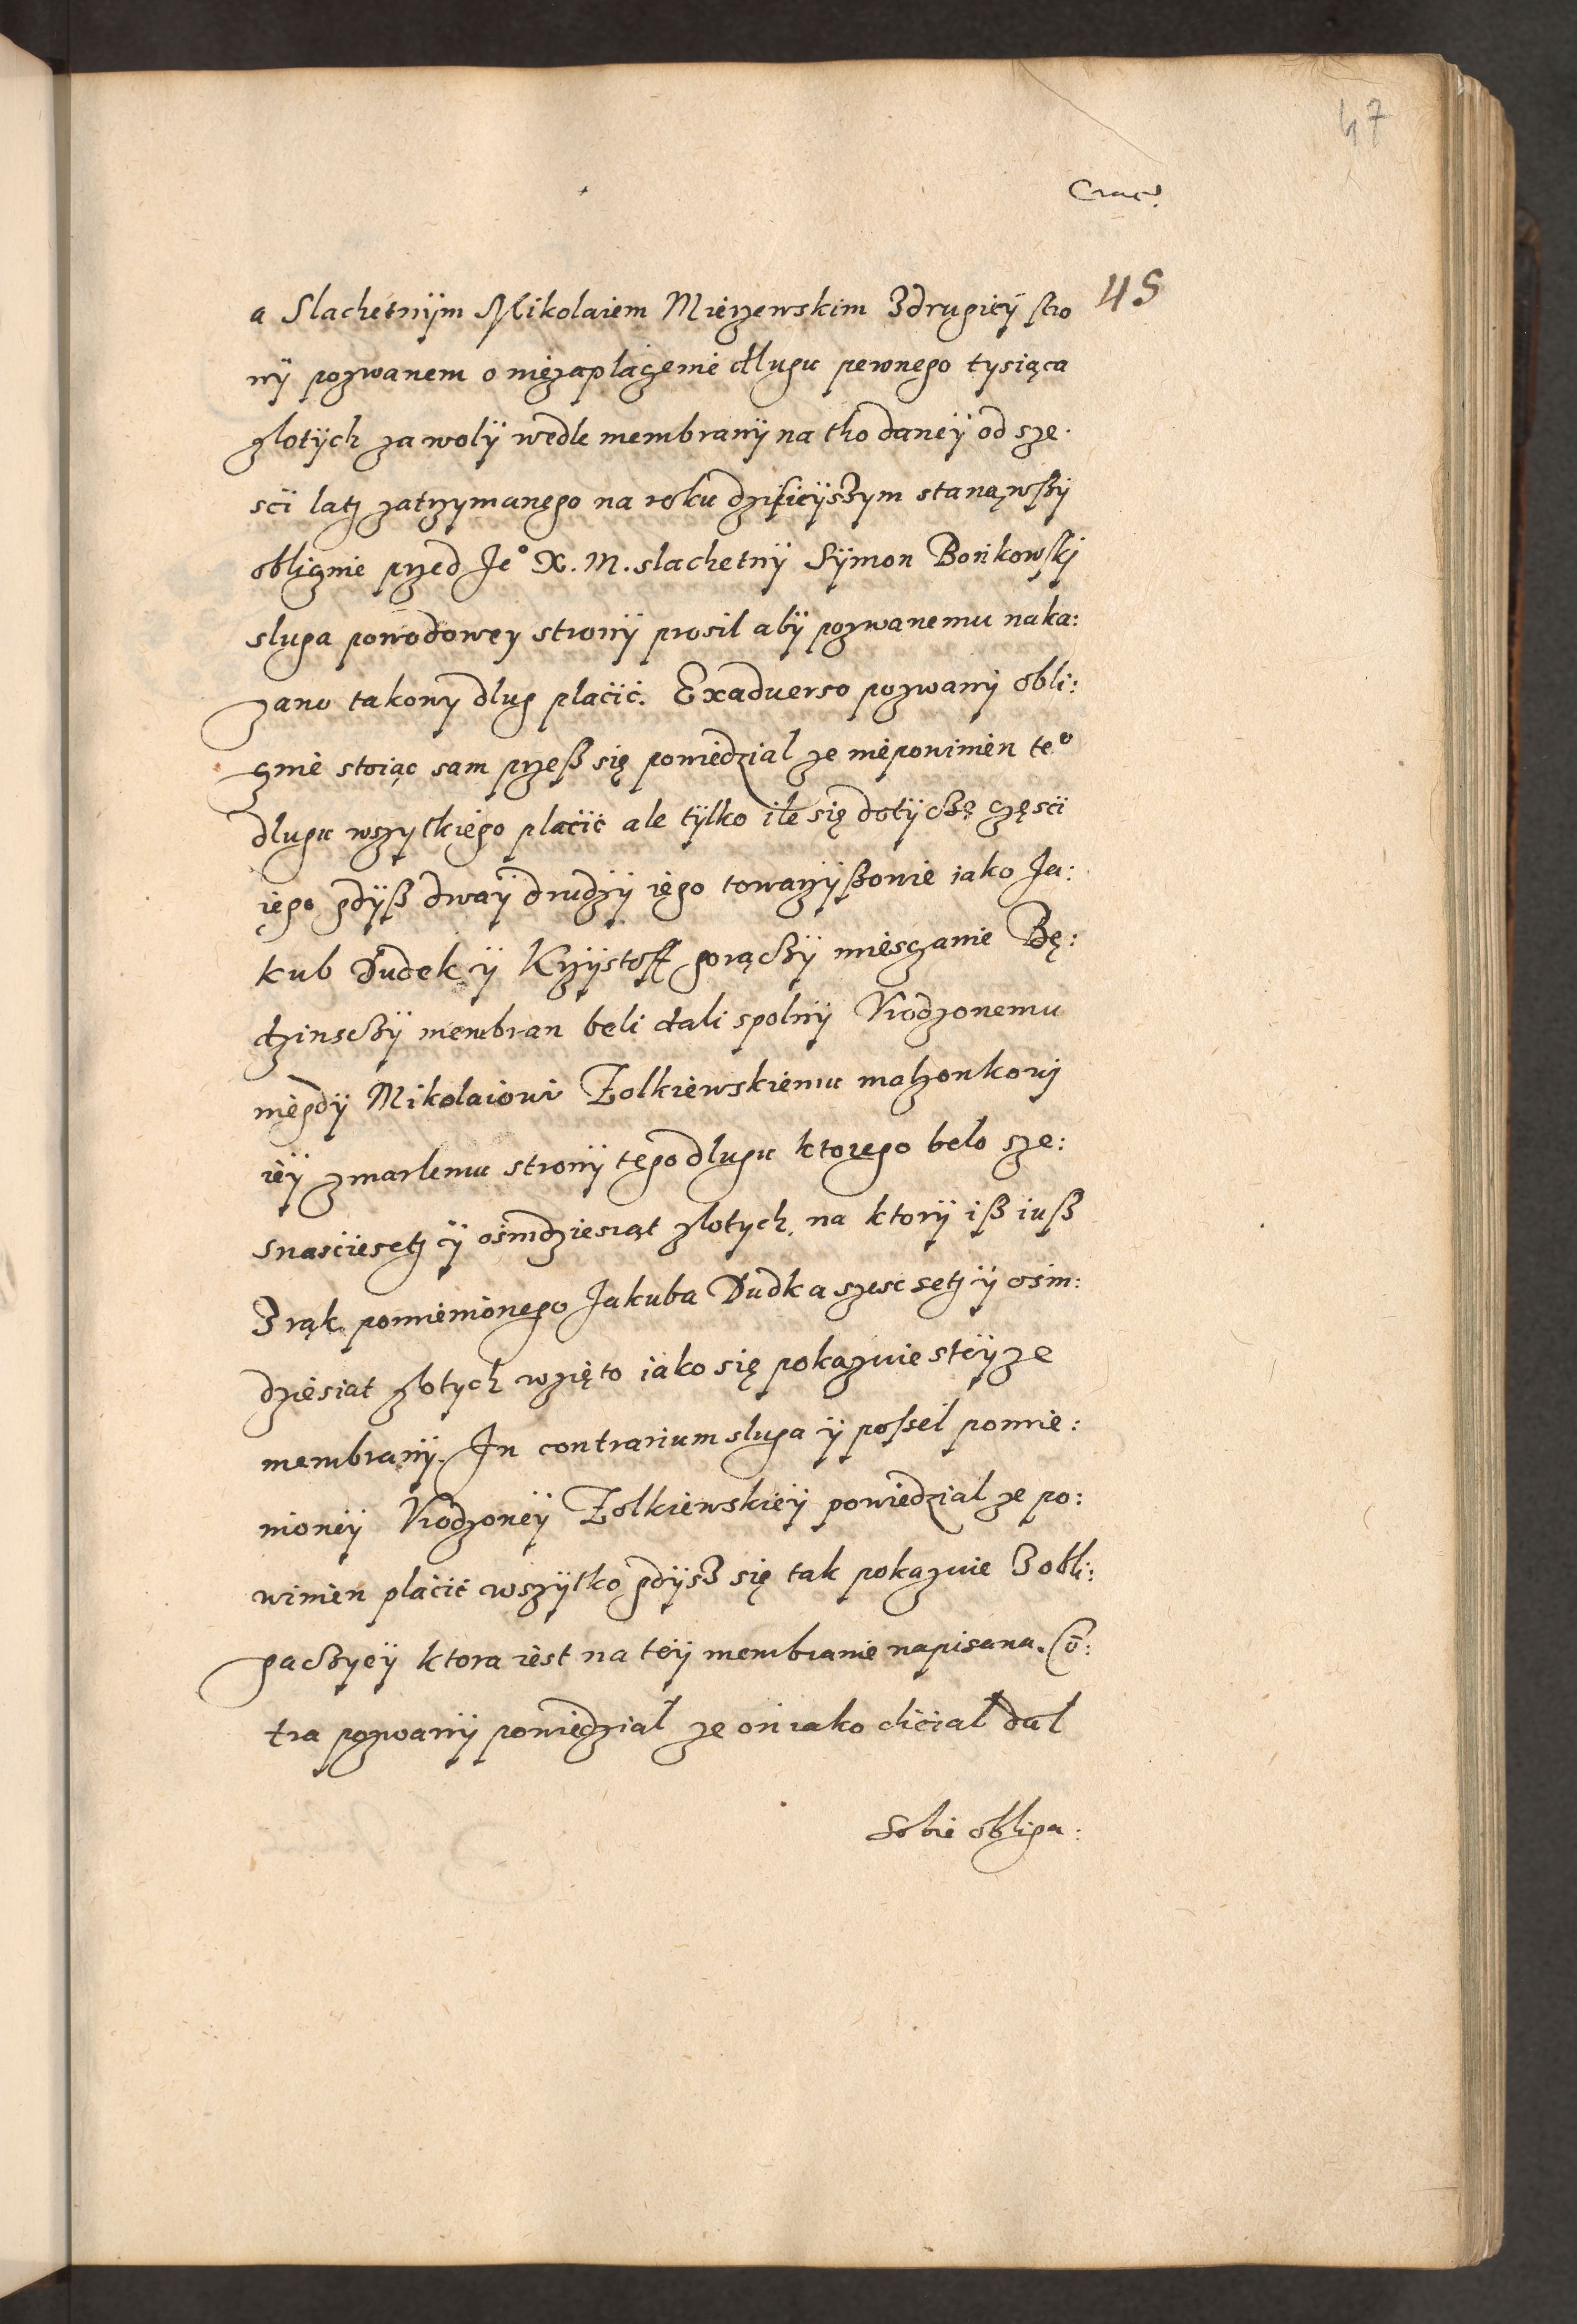 47
Crac.
45
a Slachetnÿm Mikolaiem Mierzewskim Zdrugieÿ stro
nÿ pozwanem o niezaplaczenie dlugu pewnego tysiąca
zlotÿch zawolÿ wedle membranÿ na tho daneÿ od sze:
sci latz zatrzymanego na roku dzisieÿszym stanąwszÿ
oblicznie przed Je° X. M. slachetnÿ Sÿmon Bońkowskj
sluga powodowey stronÿ prosil abÿ pozwanemu naka:
zano takowy dlug placić. Exaduerso pozwanÿ obli:
cznie stoiąc sam przeß się powiedzial ze niepowinien te°
dlugu wszytkiego placić ale tÿlko ile się dotÿcze częsci
iego gdÿß dwaÿ drudzÿ iego towarzÿßowie iako Ja:
kub Dudek ÿ Krzÿstoff gorączÿ miesczanie Bę:
dzinsczÿ membran beli dali spolnÿ Vrodzonemu
niegdÿ Mikolaiowi Zolkiewskiemu malzonkowj
ieÿ zmarlemu stronÿ tego dlugu ktorego belo sze:
snascie setz ÿ ośmdziesiąt zlotych, na ktorÿ iß iuß
Z rąk pomienionego Jakuba Dudka szesc setz ÿ osim:
dziesiat zlotych wzięto iako się pokazuie steÿze
membranÿ. In contrarium sluga ÿ possel pomie:
nioneÿ Vrodzoneÿ Zolkiewskieÿ powiedzial ze po:
winien placić wszÿtko gdÿsz się tak pokazuie Z obli:
gaczÿeÿ ktora iest na teÿ membranie napisana. Cō:
tra pozwanÿ powiedzial ze on iako chcial dal
sobie obliga: